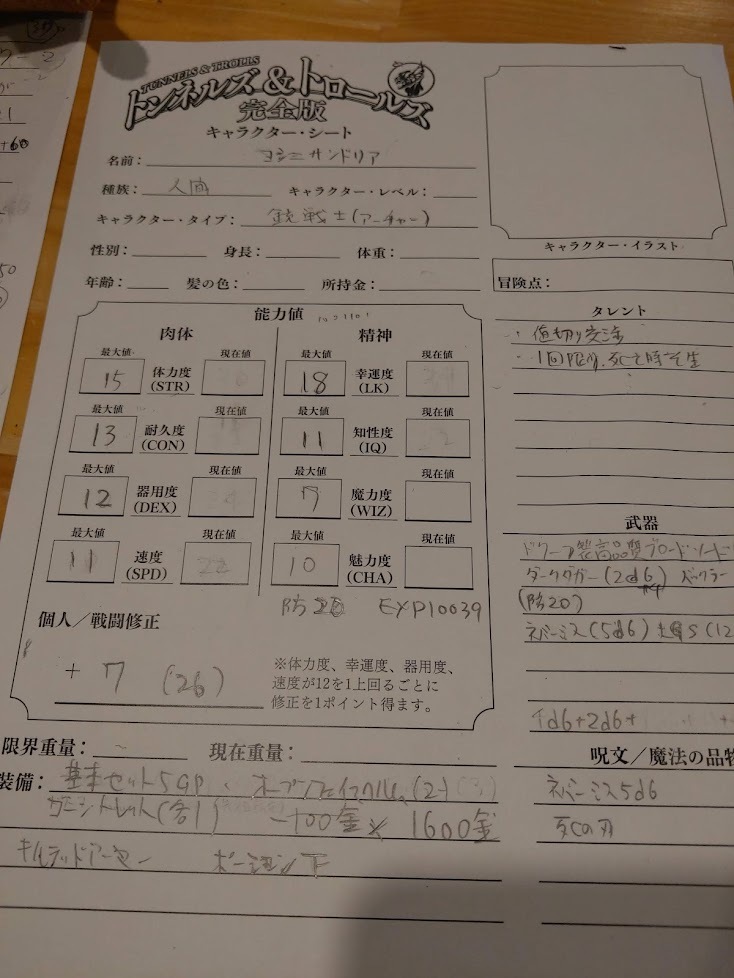 TUNNELS & TROLLS
トンネルズ&トロールズ
完全版
キャラクター・シート
名前: ヨシニサンドリア
種族: 人間 キャラクター・レベル:
キャラクター・タイプ: 銃戦士(アーチャー)
性別: 身長: 体重:
年齢: 髪の色: 所持金:
キャラクター・イラスト
冒険点:
能力値
肉体 精神
最大値 現在値 最大値 現在値
15 体力度 (STR) 18 幸運度 (LK)
最大値 現在値 最大値 現在値
13 耐久度 (CON) 11 知性度 (IQ)
最大値 現在値 最大値 現在値
12 器用度 (DEX) 7 魔力度 (WIZ)
最大値 現在値 最大値 現在値
11 速度 (SPD) 10 魅力度 (CHA)
防 EXP10039
個人/戦闘修正
+7 (26)
※体力度、幸運度、器用度、
速度が12を1上回るごとに
修正を1ポイント得ます。
タレント
・値切り交渉
・1回限り、死亡時
武器
ドワーフ製高品質ブロードソード
ダークダガー(2d6) バックラー
+4
(防20)
ネバーミス(5d6) (12
1d6+2d6+
限界重量: 現在重量:
装備: 基本セット5GP、オープンフェイスヘルム(2)
ガントレット(各1) 1600金
キルテッドアーマー ポーション
呪文/魔法の品物
ネバーミス5d6
死の刃